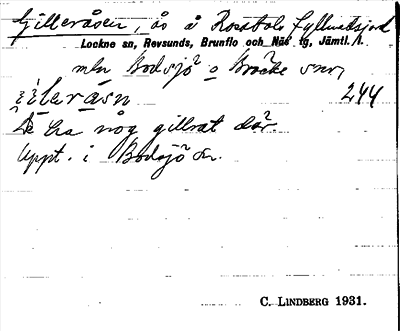 Gilleråsen, ås å Rossbols fyllnadsjord
Lockne sn, Revsunds, Brunflo och Näs tg, Jämtl. l.
mln Bodsjö o Bräcke snr,
244
De ha nog gillrat där.
Uppt. i Bodsjö sn.
C. LINDBERG 1931.